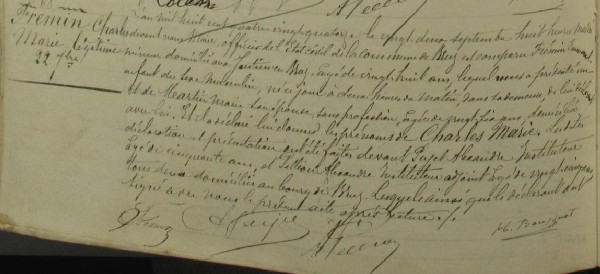 L'an mil huit cent quatre vingt quatorze le vingt deux septembre huit heures
Fremin Charles
Marie légitime
22 7bre
devant nous Maire, officier de l'Etat Civil de la commune de Bruz est comparu Fremin
mineur domicilié au en Bruz, âgé de vingt huit ans, lequel nous a présenté un
enfant du sexe masculin, né ce jour à deux heures du matin, dans sa demeure, de lui déclarant
et de Martin Marie son épouse, sans profession, âgée de vingt six ans, domiciliée
avec lui. Et il a déclaré lui donner les prénoms de Charles Marie. Lesdites
déclaration et présentation ont été faites devant Pujel Alexandre Instituteur
âgé de cinquante ans, et Tellier Alexandre Instituteur adjoint âgé de vingt cinq ans
tous deux domiciliés au bourg de Bruz, lesquels ainsi que le déclarant ont
signé avec nous le présent acte après lecture ./.